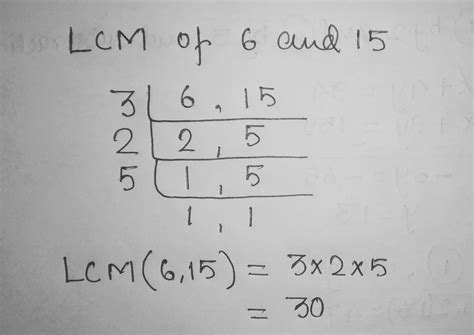 LCM of 6 and 15
3 | 6, 15
2 | 2, 5
5 | 1, 5
1, 1
LCM(6,15) = 3×2×5
= 30